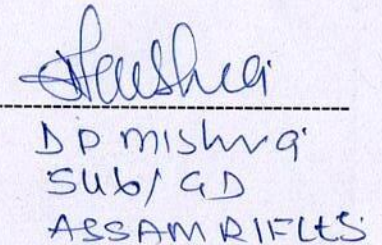 DP Mishra
Sub/GD
ASSAM RIFLES